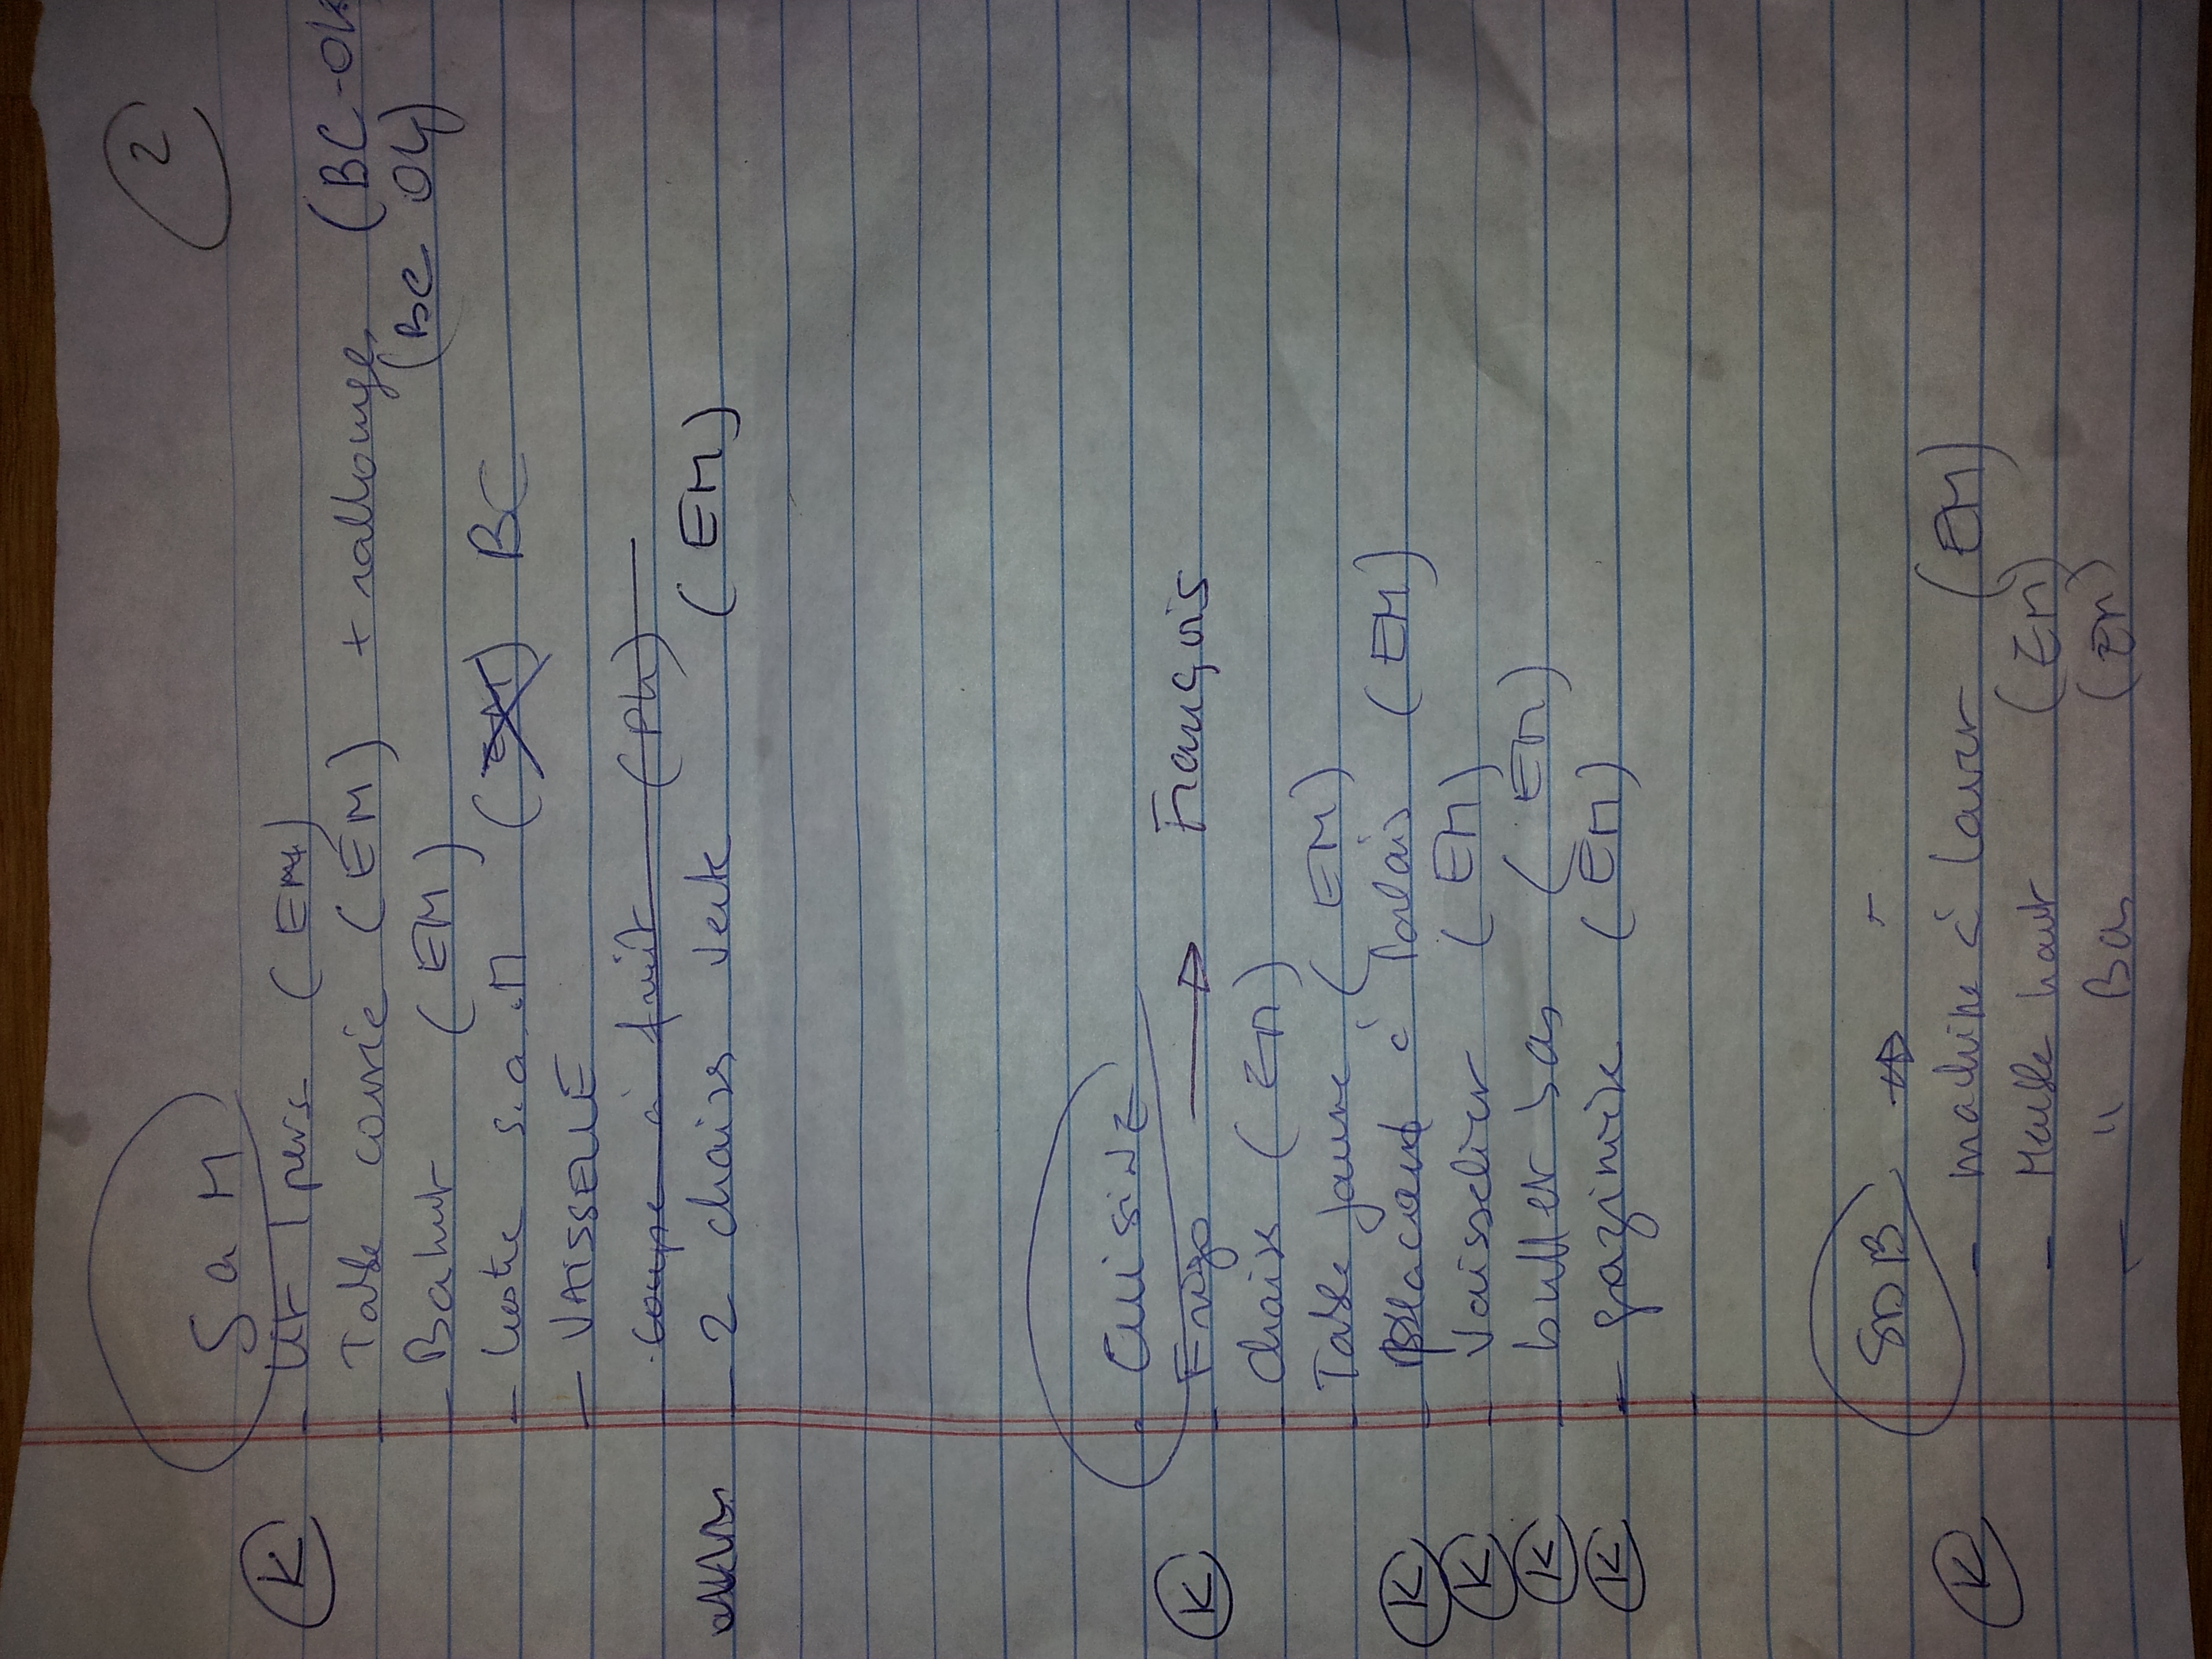 2
SaM
K - Lit 1 pers. (EM)
- Table carrée (EM) + rallonge (BC-OK
- Bahut (EM) (BC OK)
- lustre s.a.M (EM) BC
- VAISSELLE
- coupe à fruit (Ph)
- 2 chaises verte (EM)
Cuisine
K - Frigo → François
- chaise (EM)
- Table jaune (EM)
K - Placard à balais (EM)
K - Vaisselier (EM)
K - buffet bas (EM)
K - gazinière (EM)
SDB →
K - machine à laver (EM)
- Meuble haut (EM)
- " Bas (EM)